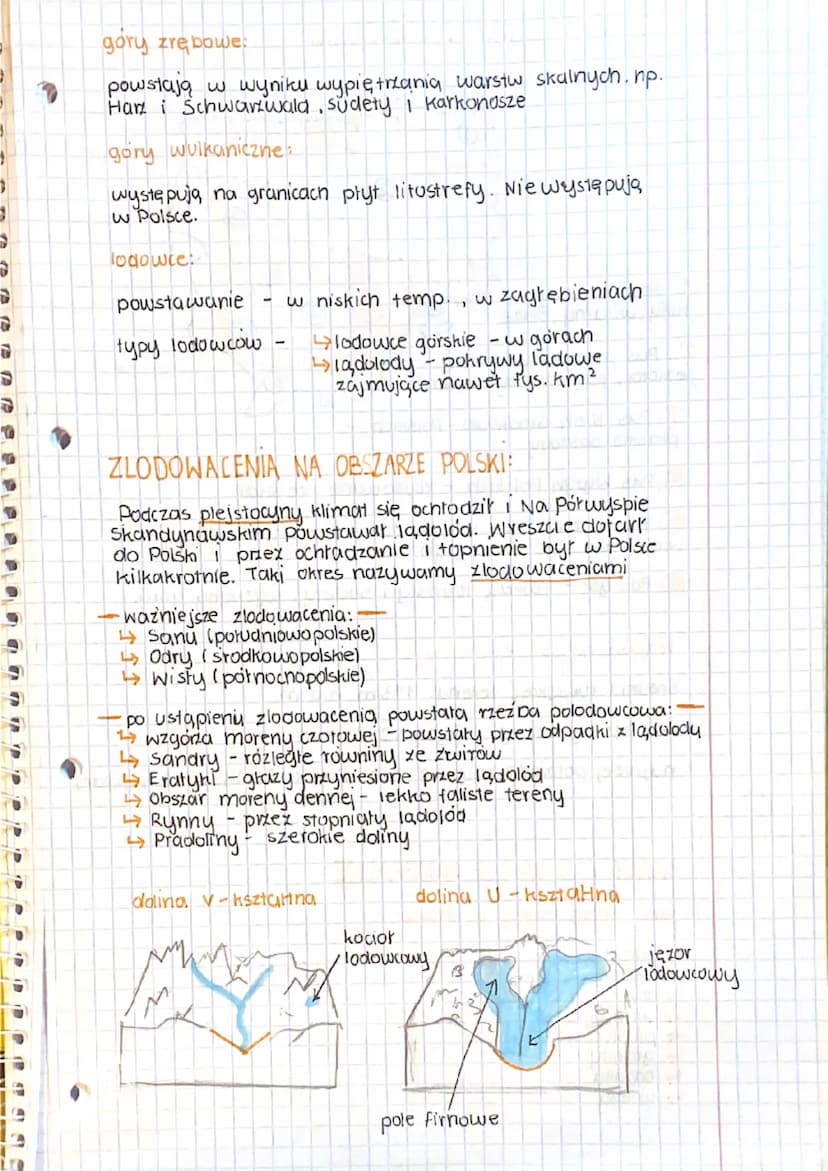 góry zrębowe:
powstają w wyniku wypiętrzania warstw skalnych. np.
Harz i Schwarzwald, sudety i karkonosze
góry wulkaniczne:
występują na granicach płyt litostrefy. Nie występują
w Polsce.
lodowce:
powstawanie - w niskich temp., w zagłębieniach
typy lodowców - ↳ lodowce górskie - w górach
↳ lądolody - pokrywy lądowe
zajmujące nawet tys. km²
ZLODOWACENIA NA OBSZARZE POLSKI:
Podczas plejstocyny klimat się ochłodził i Na Półwyspie
Skandynawskim powstawał lądolód. Wreszcie dotarł
do Polski i przez ochładzanie i topnienie był w Polsce
kilkakrotnie. Taki okres nazywamy zlodowaceniami
- ważniejsze zlodowacenia: -
↳ Sanu (południowopolskie)
↳ Odry (środkowopolskie)
↳ Wisły (północnopolskie)
- po ustąpieniu zlodowacenia powstała rzeźba polodowcowa: -
↳ wzgórza moreny czołowej - powstały przez odpadki z lądolodu
↳ Sandry - rozległe równiny ze żwirów
↳ Eratyki - głazy przyniesione przez lądolód
↳ Obszar moreny dennej - lekko faliste tereny
↳ Rynny - przez stopniały lądolód
↳ Pradoliny - szerokie doliny
dolina V - kształtna
dolina U - kształtna
kocioł
lodowkowy
jęzor
lodowcowy
pole firnowe